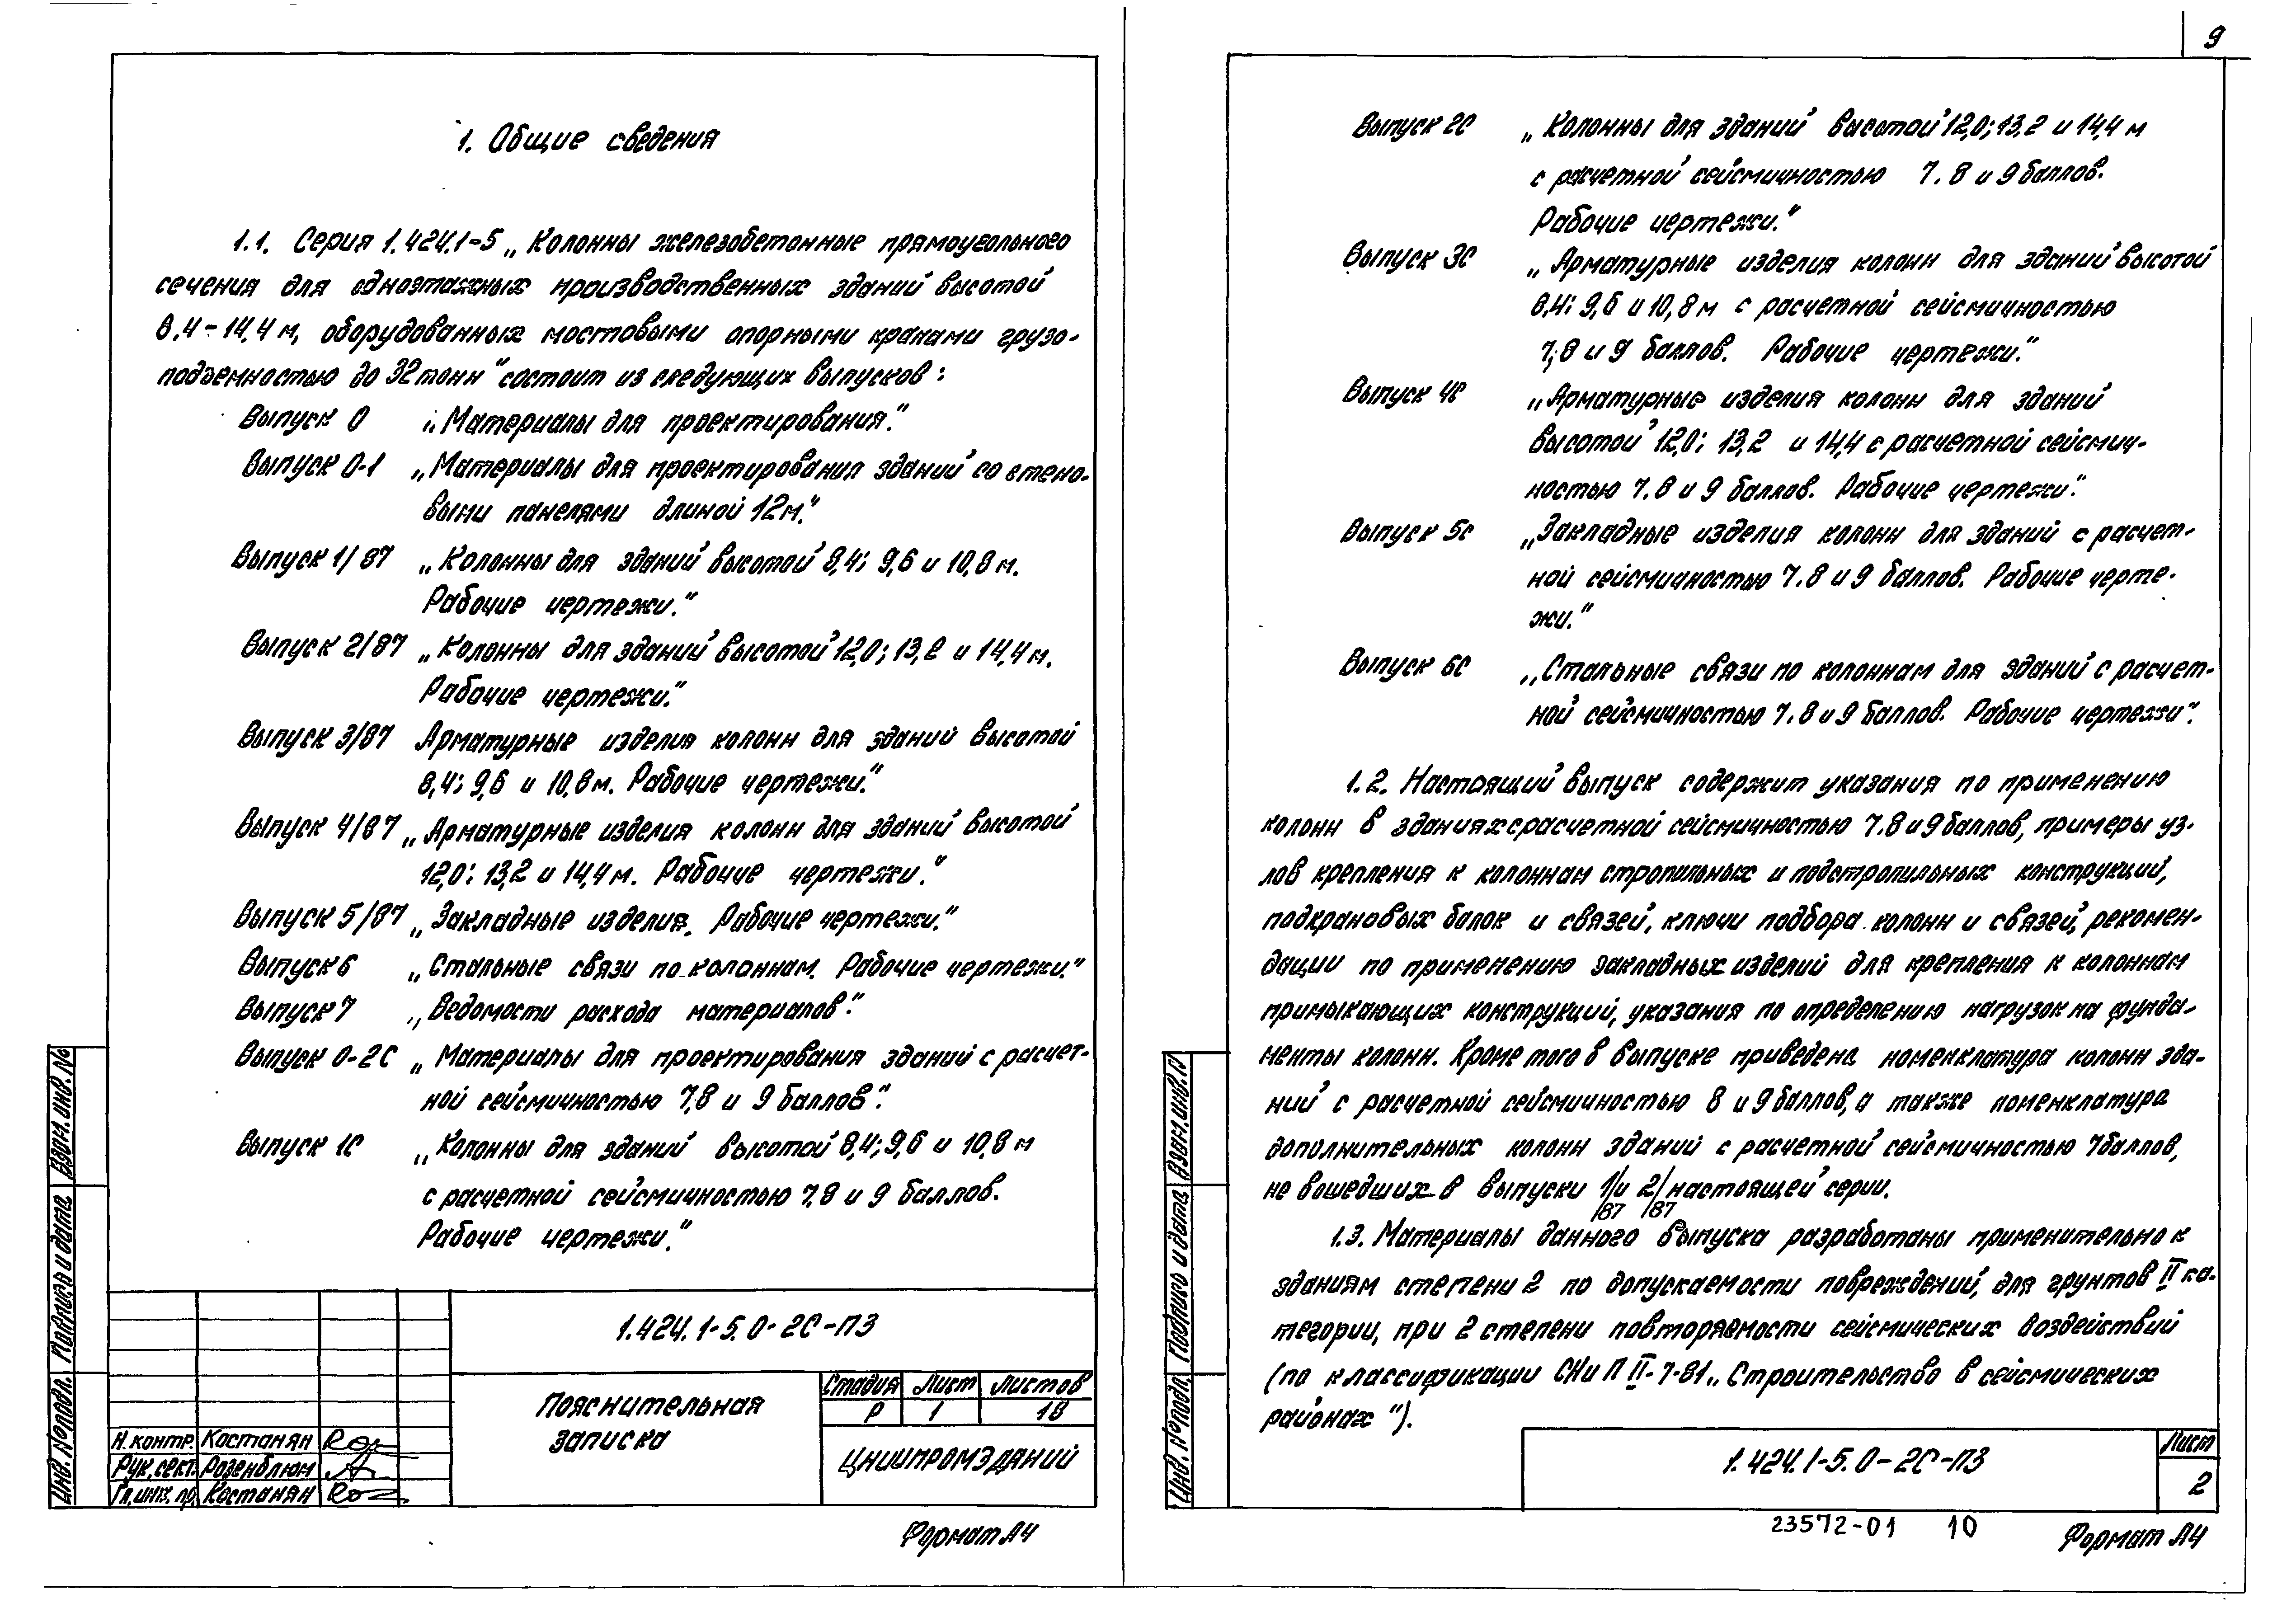 1. Общие сведения
1.1. Серия 1.424.1-5 „Колонны железобетонные прямоугольного
сечения для одноэтажных производственных зданий высотой
8,4-14,4 м, оборудованных мостовыми опорными кранами грузо-
подъемностью до 32 тонн" состоит из следующих выпусков:
Выпуск 0 „Материалы для проектирования."
Выпуск 0-1 „Материалы для проектирования зданий со стено-
выми панелями длиной 12м."
Выпуск 1/87 „Колонны для зданий высотой 8,4; 9,6 и 10,8 м.
Рабочие чертежи."
Выпуск 2/87 „Колонны для зданий высотой 12,0; 13,2 и 14,4 м.
Рабочие чертежи."
Выпуск 3/87 Арматурные изделия колонн для зданий высотой
8,4; 9,6 и 10,8 м. Рабочие чертежи."
Выпуск 4/87 „Арматурные изделия колонн для зданий высотой
12,0; 13,2 и 14,4 м. Рабочие чертежи."
Выпуск 5/87 „Закладные изделия. Рабочие чертежи."
Выпуск 6 „Стальные связи по колоннам. Рабочие чертежи."
Выпуск 7 „Ведомости расхода материалов".
Выпуск 0-2С „Материалы для проектирования зданий с расчет-
ной сейсмичностью 7,8 и 9 баллов".
Выпуск 1С „Колонны для зданий высотой 8,4; 9,6 и 10,8 м
с расчетной сейсмичностью 7,8 и 9 баллов.
Рабочие чертежи."
1.424.1-5.0-2С-ПЗ
Пояснительная
записка
Стадия Лист Листов
Р 1 18
ЦНИИПРОМЗДАНИЙ
Н.контр. Костанян
Рук.сект. Розенблюм
Гл.инж.пр. Костанян
Инв. № подл. Подпись и дата Взам.инв.№
Формат А4
9
Выпуск 2С „Колонны для зданий высотой 12,0; 13,2 и 14,4 м
с расчетной сейсмичностью 7.8 и 9 баллов.
Рабочие чертежи."
Выпуск 3С „Арматурные изделия колонн для зданий высотой
8,4; 9,6 и 10,8 м с расчетной сейсмичностью
7,8 и 9 баллов. Рабочие чертежи."
Выпуск 4С „Арматурные изделия колонн для зданий
высотой 12,0; 13,2 и 14,4 с расчетной сейсмич-
ностью 7.8 и 9 баллов. Рабочие чертежи".
Выпуск 5С „Закладные изделия колонн для зданий с расчет-
ной сейсмичностью 7.8 и 9 баллов. Рабочие черте-
жи."
Выпуск 6С „Стальные связи по колоннам для зданий с расчет-
ной сейсмичностью 7.8 и 9 баллов. Рабочие чертежи".
1.2. Настоящий выпуск содержит указания по применению
колонн в зданиях с расчетной сейсмичностью 7.8 и 9 баллов, примеры уз-
лов крепления к колоннам стропильных и подстропильных конструкций,
подкрановых балок и связей, ключи подбора колонн и связей, рекомен-
дации по применению закладных изделий для крепления к колоннам
примыкающих конструкций, указания по определению нагрузок на фунда-
менты колонн. Кроме того в выпуске приведена номенклатура колонн зда-
ний с расчетной сейсмичностью 8 и 9 баллов, а также номенклатура
дополнительных колонн зданий с расчетной сейсмичностью 7 баллов,
не вошедших в выпуски 1/87 и 2/87 настоящей серии.
1.3. Материалы данного выпуска разработаны применительно к
зданиям степени 2 по допускаемости повреждений, для грунтов II ка-
тегории, при 2 степени повторяемости сейсмических воздействий
(по классификации СНиП II-7-81 „Строительство в сейсмических
районах").
1.424.1-5.0-2С-ПЗ
Лист
2
Инв. № подл. Подпись и дата Взам.инв.№
23572-01 10
Формат А4